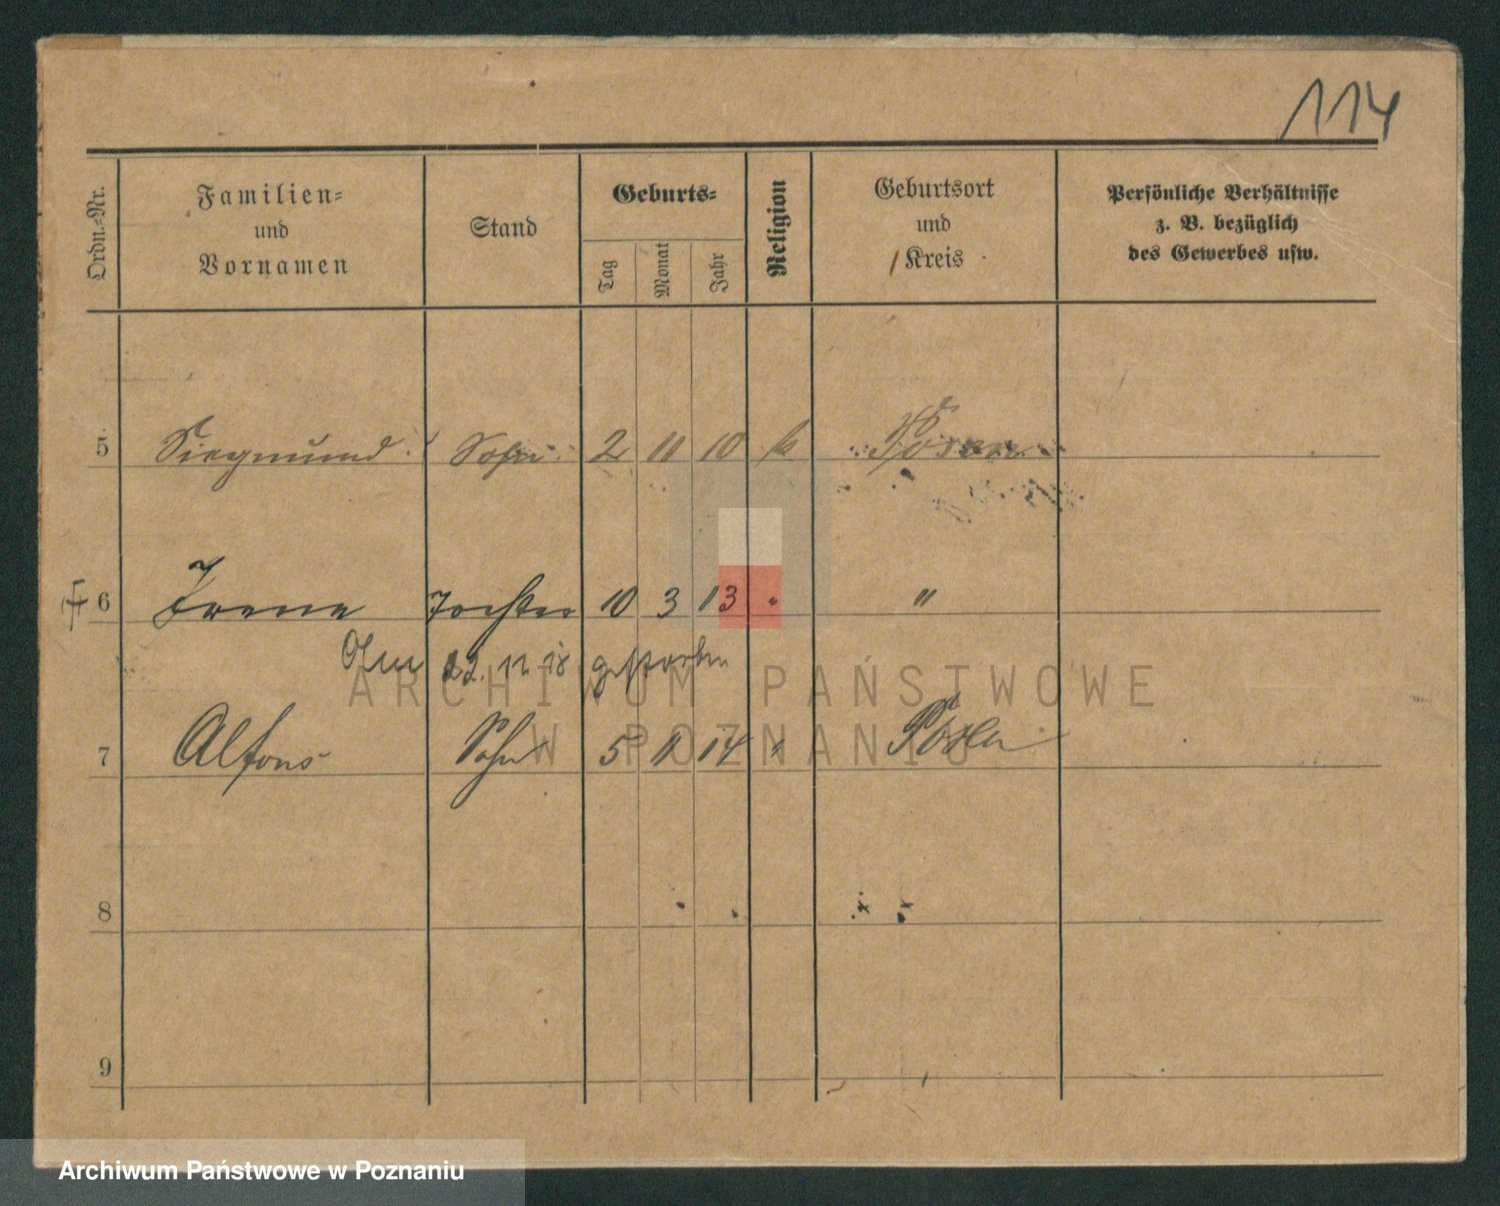 114
Ordn.-Nr. Familien- und Vornamen Stand Geburts- Tag Monat Jahr Religion Geburtsort und Kreis Persönliche Verhältnisse z. B. bezüglich des Gewerbes usw.
5 Siegmund Sohn 2 11 10 k Posen
6 Irene Tochter 10 3 13 " "
Am 22. 11. 18 gestorben
7 Alfons Sohn 5 11 14 " Posen
8
9
ARCHIWUM PAŃSTWOWE
W POZNANIU
Archiwum Państwowe w Poznaniu